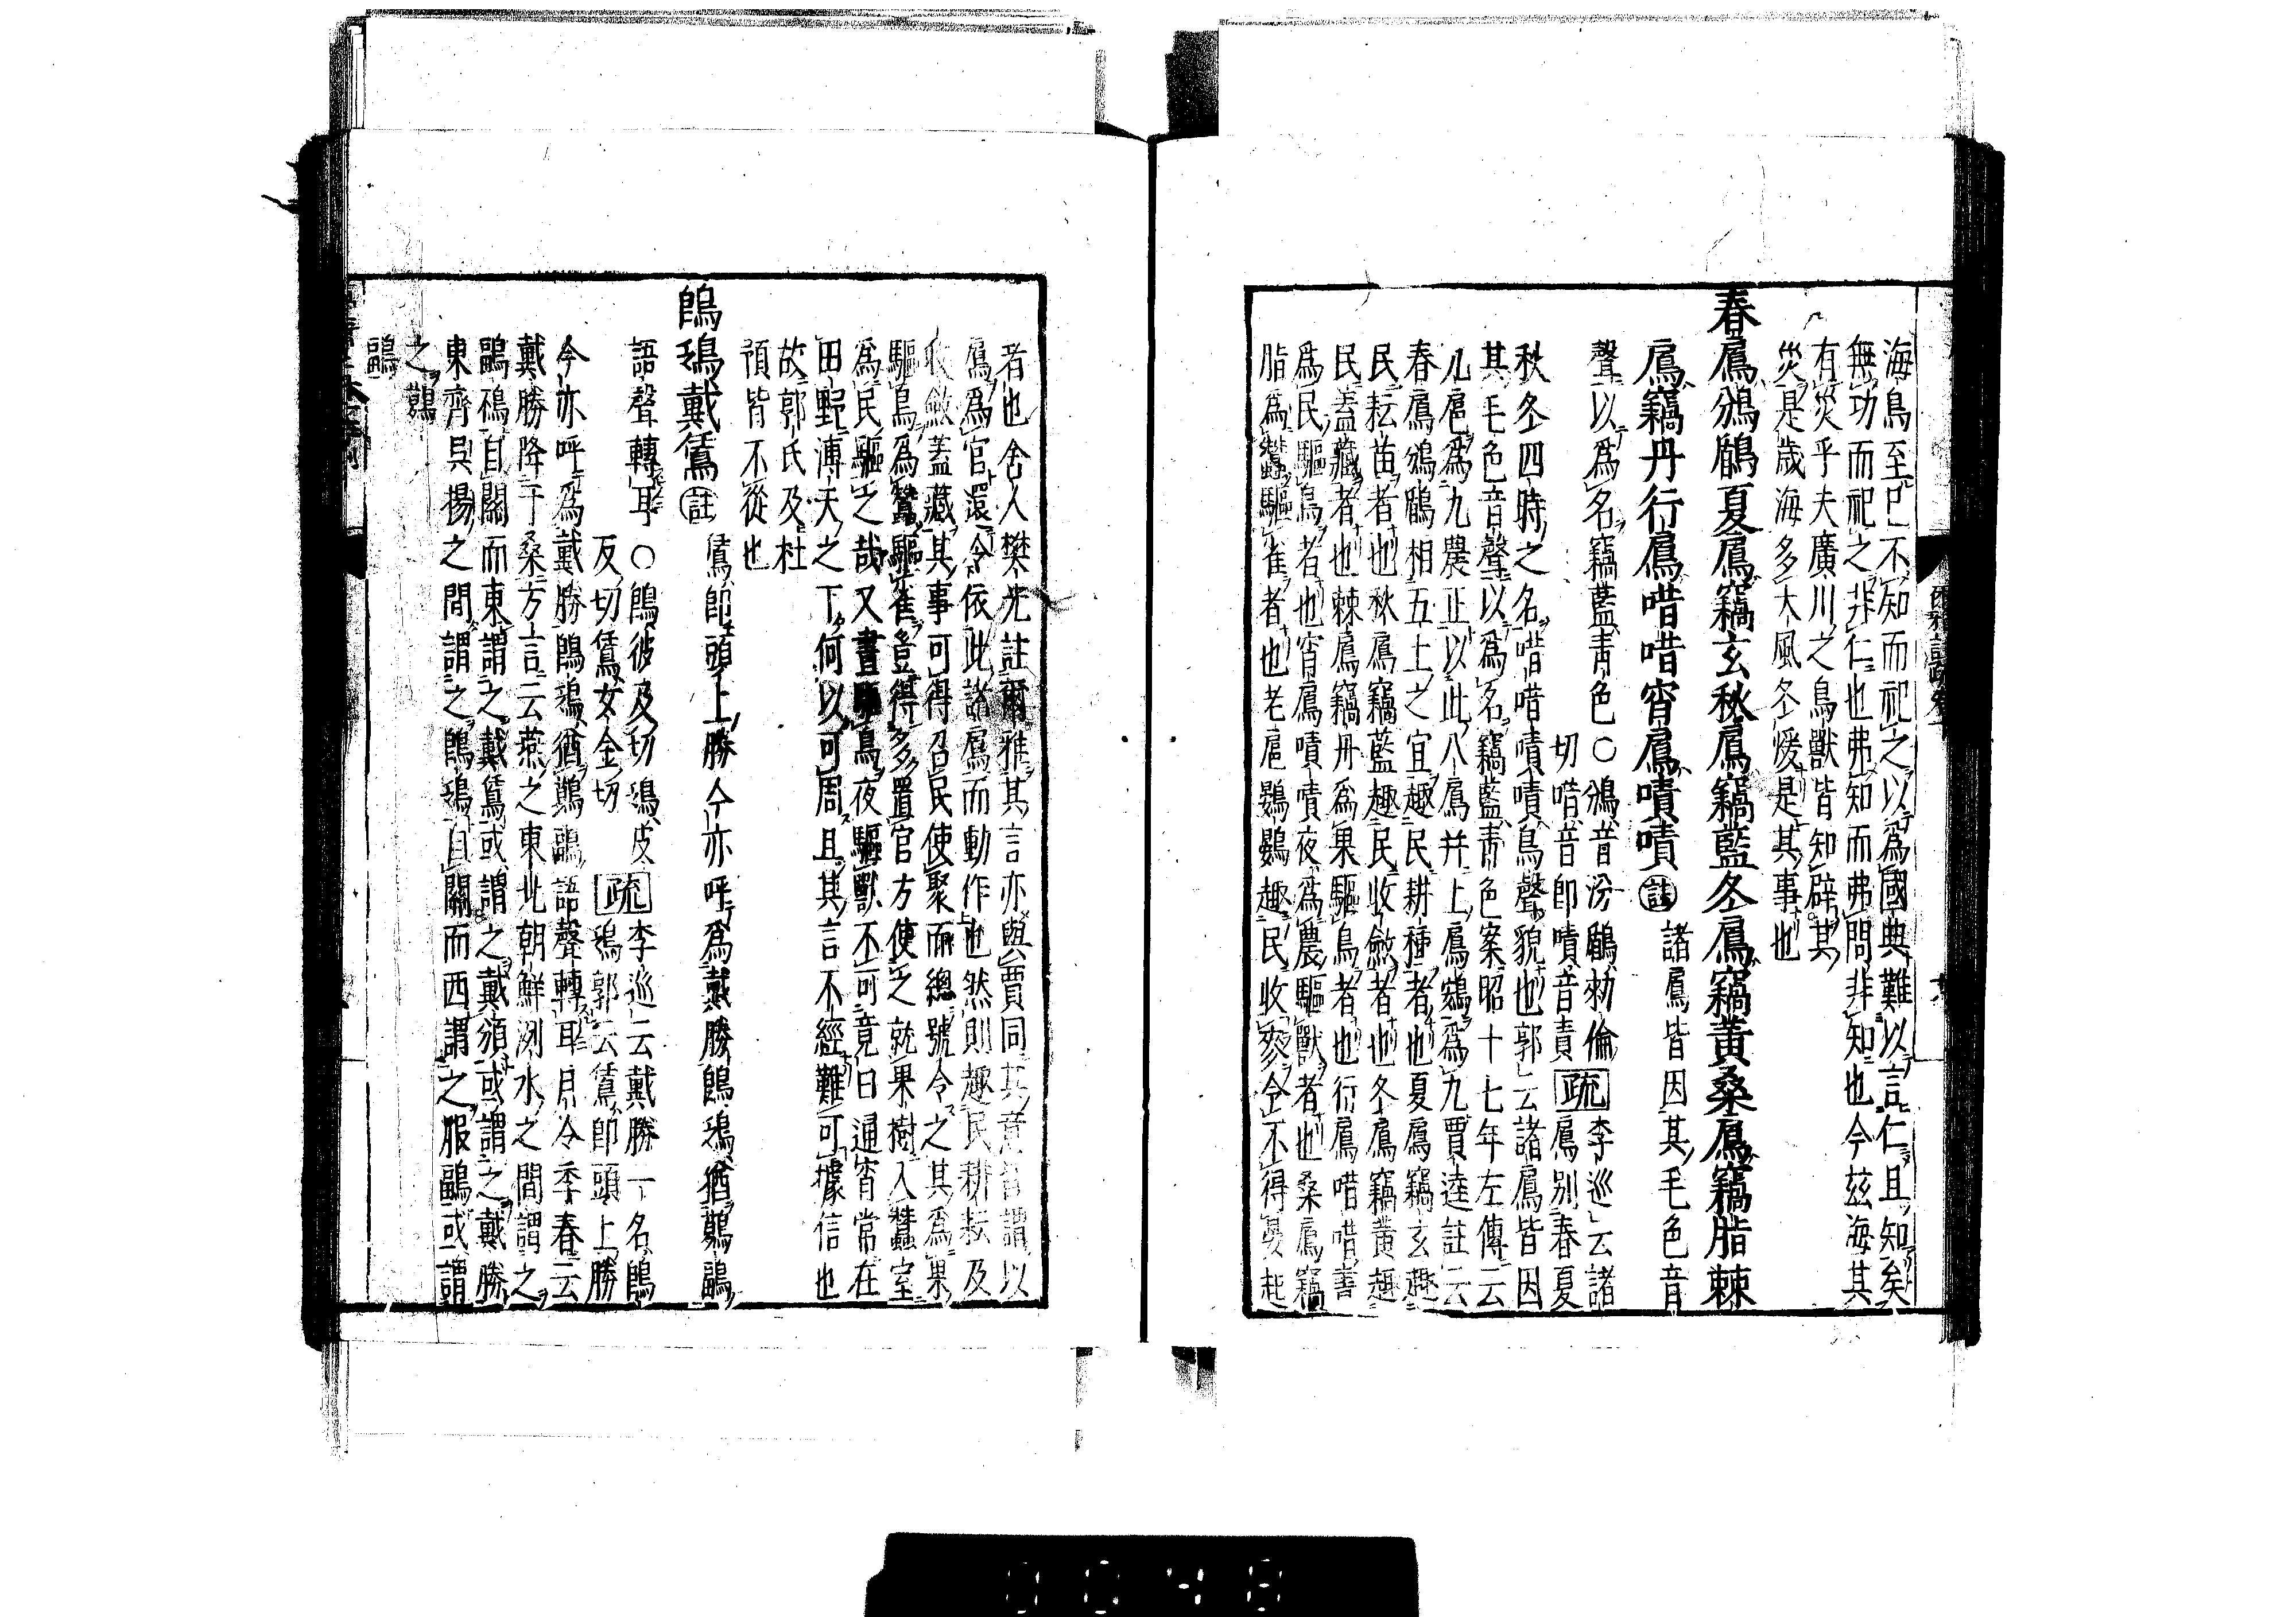 海鳥至已不知而祀之以爲國典難以言仁且知矣
無功而祀之非仁也弗知而弗問非知也今茲海其
有災乎夫廣川之鳥獸皆知辟其
災是歲海多大風冬煖是其事也
春鳸鳻鶞夏鳸竊玄秋鳸竊藍冬鳸竊黃桑鳸竊脂棘
鳸竊丹行鳸唶唶宵鳸嘖嘖註諸鳸皆因其毛色音
聲以爲名竊藍青色〇鳻音汾鶞勑倫
切唶音即嘖音責疏李巡云諸
鳸別春夏
秋冬四時之名唶唶嘖嘖鳥聲貌也郭云諸鳸皆因
其毛色音聲以爲名竊藍青色案昭十七年左傳云
九扈爲九農正以此八鳸并上鳸鴳爲九賈逵註云
春鳸鳻鶞相五土之宜趣民耕種者也夏鳸竊玄趣
民耘苗者也秋鳸竊藍趣民收斂者也冬鳸竊黃趣
民蓋藏者也棘鳸竊丹爲果驅鳥者也行鳸唶唶晝
爲民驅鳥者也宵鳸嘖嘖夜爲農驅獸者也桑鳸竊
脂爲蠶驅雀者也老扈鷃鷃趣民收麥令不得晏起
者也舍人樊光註爾雅其言亦與賈同其意皆謂以
鳸爲官還令依此諸鳸而動作也然則趣民耕耘及
收斂蓋藏其事可得召民使聚而總號令之其爲果
驅鳥爲蠶驅雀豈得多置官方使之就果樹入蠶室
爲民驅之哉又晝驅鳥夜驅獸不可竟日通宵常在
田野溥天之下何以可周且其言不經難可據信也
故郭氏及杜
預皆不從也
鵖鴔戴鵀註鵀即頭上勝今亦呼爲戴勝鵖鴔猶鶝鶔
語聲轉耳〇鵖彼及切鴔皮
及切鵀女金切疏李巡云戴勝一名鵖
鴔郭云鵀即頭上勝
今亦呼爲戴勝鵖鴔猶鶝鶔語聲轉耳月令季春云
戴勝降于桑方言云燕之東北朝鮮洌水之間謂之
鶝鴀自關而東謂之戴鵀或謂之戴頒或謂之戴勝
東齊吳揚之間謂之鵖鴔自關而西謂之服鶝或謂
之鶔
鶝